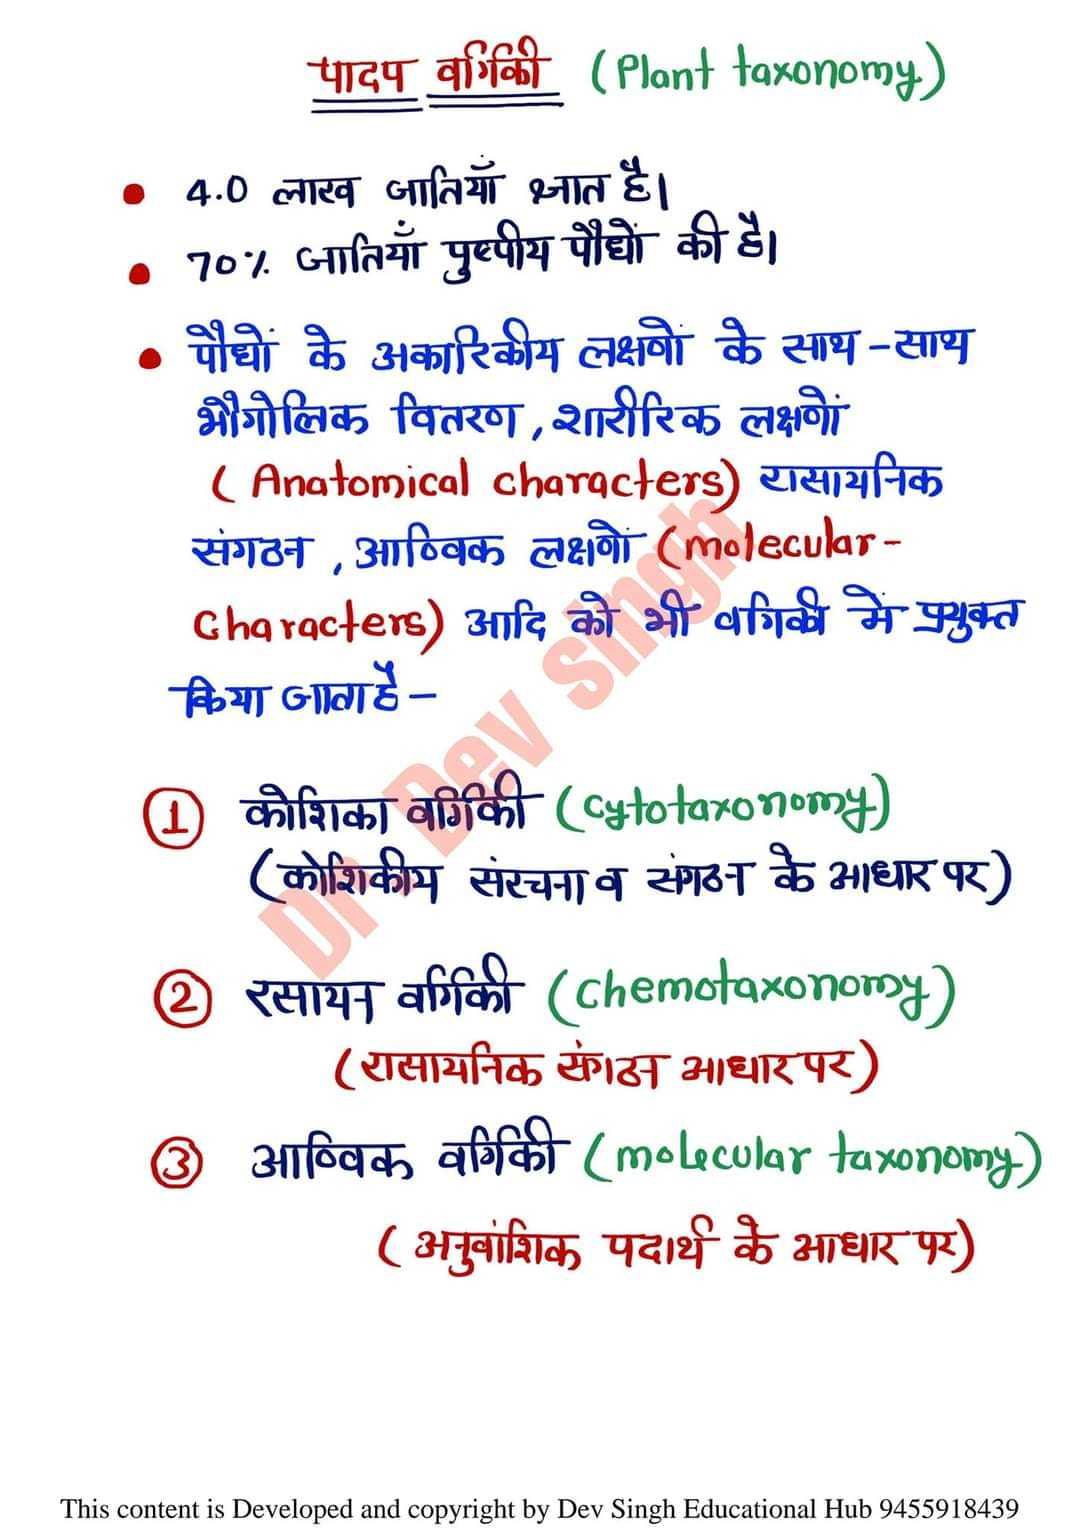 पादप वर्गिकी (Plant taxonomy)
• 4.0 लाख जातियाँ ज्ञात है।
• 70% जातियाँ पुष्पीय पौधों की है।
• पौधों के अकारिकीय लक्षणों के साथ-साथ
भौगोलिक वितरण, शारीरिक लक्षणों
(Anatomical characters) रासायनिक
संगठन, आण्विक लक्षणों (molecular-
Characters) आदि को भी वर्गिकी में प्रयुक्त
किया जाता है-
① कोशिका वर्गिकी (cytotaxonomy)
(कोशिकीय संरचना व संगठन के आधार पर)
② रसायन वर्गिकी (chemotaxonomy)
(रासायनिक संगठन आधार पर)
③ आण्विक वर्गिकी (molecular taxonomy)
(अनुवांशिक पदार्थ के आधार पर)
Dr Dev Singh
This content is Developed and copyright by Dev Singh Educational Hub 9455918439